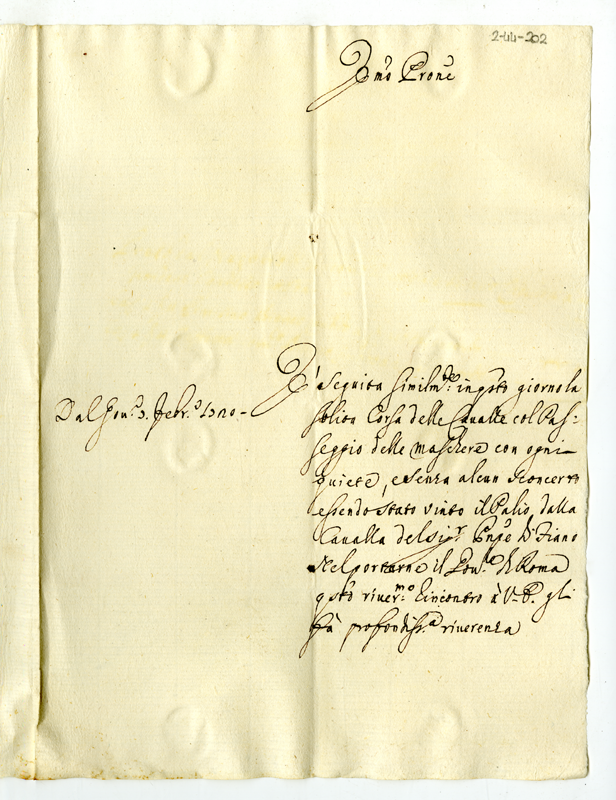 2-44-202
Emo Prone
E' seguita similmte: in qsto giorno la
solita Corsa delle Cavalle col Pas-
seggio delle maschere con ogni
quiete, e senza alcun sconcerto
essendo stato vinto il Palio dalla
Cavalla del sigr. Pnpe di Fiano
Nel portarne il Govre di Roma
qsto rivermo riincontro à V. P. gli
fà profondissa riverenza
Dal Govo 3. Febro 1720-